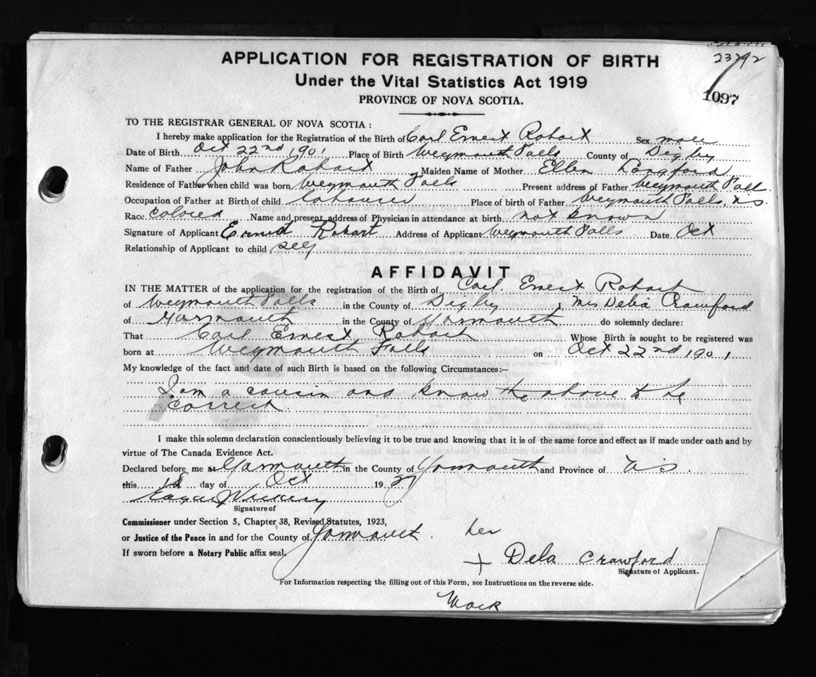 23292
APPLICATION FOR REGISTRATION OF BIRTH
Under the Vital Statistics Act 1919
1097
PROVINCE OF NOVA SCOTIA.
TO THE REGISTRAR GENERAL OF NOVA SCOTIA :
I hereby make application for the Registration of the Birth of Carl Ernest Robart Sex male
Date of Birth Oct 22nd 1901 Place of Birth Weymouth Falls County of Digby
Name of Father John Robart Maiden Name of Mother Ellen Langford
Residence of Father when child was born Weymouth Falls Present address of Father Weymouth Falls
Occupation of Father at Birth of child labourer Place of birth of Father Weymouth Falls, N.S.
Race colored Name and present address of Physician in attendance at birth not known
Signature of Applicant Ernest Robart Address of Applicant Weymouth Falls Date Oct
Relationship of Applicant to child self
AFFIDAVIT
IN THE MATTER of the application for the registration of the Birth of Carl Ernest Robart
of Weymouth Falls in the County of Digby , Mrs Delia Crawford
of Yarmouth in the County of Yarmouth do solemnly declare:
That Carl Ernest Robart Whose Birth is sought to be registered was
born at Weymouth Falls on Oct 22nd 1901
My knowledge of the fact and date of such Birth is based on the following Circumstances:—
I am a cousin and know the above to be
correct.
I make this solemn declaration conscientiously believing it to be true and knowing that it is of the same force and effect as if made under oath and by
virtue of The Canada Evidence Act.
Declared before me at Yarmouth in the County of Yarmouth and Province of N.S.
this day of Oct 19
Signature of
Commissioner under Section 5, Chapter 38, Revised Statutes, 1923,
or Justice of the Peace in and for the County of Yarmouth. her
If sworn before a Notary Public affix seal. + Dela Crawford
Signature of Applicant.
For Information respecting the filling out of this Form, see Instructions on the reverse side.
Mark